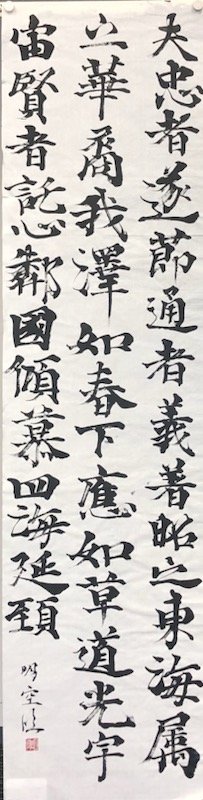 夫忠者遂節通者義著昭之東海属
之華裔我澤如春下應如草道光宇
宙賢者託心鄰國傾慕四海延頸
空臨